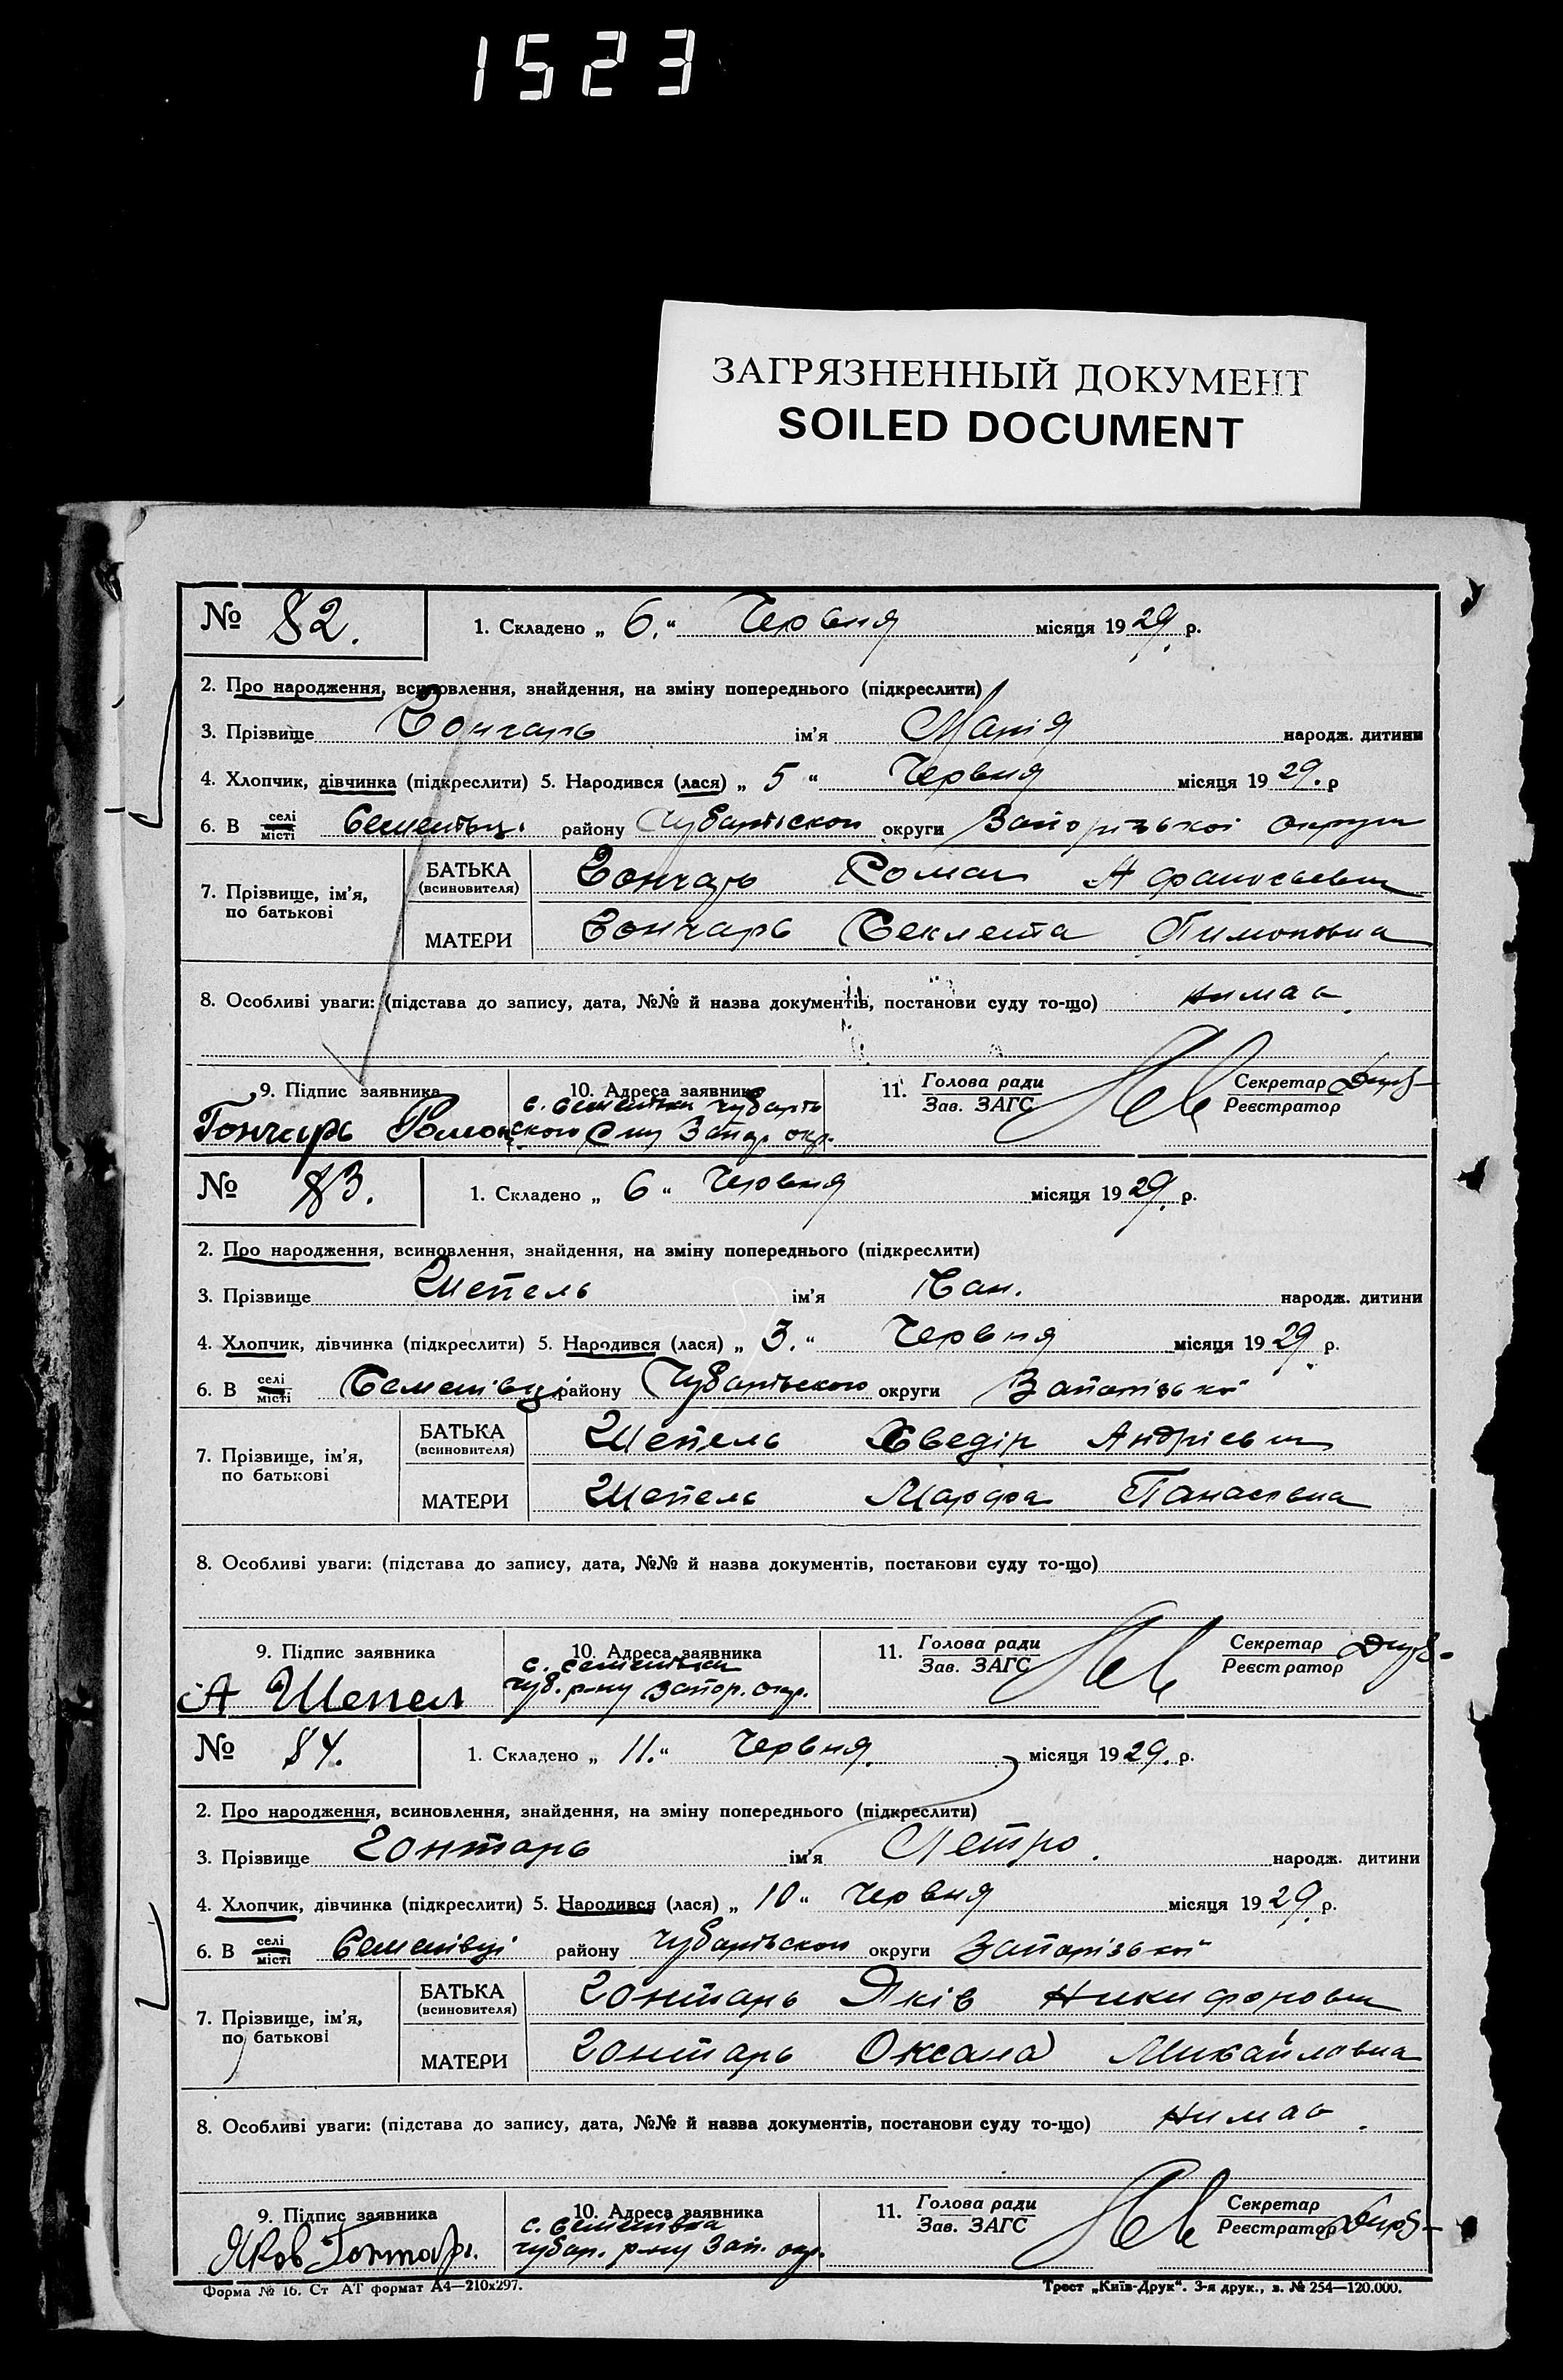 1523
ЗАГРЯЗНЕННЫЙ ДОКУМЕНТ
SOILED DOCUMENT
№ 82.
1. Складено „ 6. “ Червня місяця 1929. р.
2. Про народження, всиновлення, знайдення, на зміну попереднього (підкреслити)
3. Прізвище Гончарь ім’я Марія народж. дитини
4. Хлопчик, дівчинка (підкреслити) 5. Народився (лася) „ 5 “ Червня місяця 1929. р
6. В селі місті Семенівці району Чубарівского округи Запорізькоі округи
7. Прізвище, ім’я, по батькові
БАТЬКА (всиновителя) Гончарь Роман Афаносьевич
МАТЕРИ Гончарь Секлета Тимоповна
8. Особливі уваги: (підстава до запису, дата, №№ й назва документів, постанови суду то-що) нимає
9. Підпис заявника 10. Адреса заявника 11. Голова ради Зав. ЗАГС Секретар Реєстратор
с. Семенівка Чубарів
Гончарь Роман ского р-ну Запор. окр.
№ 83.
1. Складено „ 6 “ Червня місяця 1929. р.
2. Про народження, всиновлення, знайдення, на зміну попереднього (підкреслити)
3. Прізвище Шепель ім’я Іван. народж. дитини
4. Хлопчик, дівчинка (підкреслити) 5. Народився (лася) „ 3. “ Червня місяця 1929 р.
6. В селі місті Семенівці району Чубарівского округи Запорізькоі
7. Прізвище, ім’я, по батькові
БАТЬКА (всиновителя) Шепель Хведір Андрієвич
МАТЕРИ Шепель Марфа Панасовна
8. Особливі уваги: (підстава до запису, дата, №№ й назва документів, постанови суду то-що)
9. Підпис заявника 10. Адреса заявника 11. Голова ради Зав. ЗАГС Секретар Реєстратор
с. Семенівка
А Шепел Чуб. р-ну Запор. окр.
№ 84.
1. Складено „ 11. “ Червня. місяця 1929. р.
2. Про народження, всиновлення, знайдення, на зміну попереднього (підкреслити)
3. Прізвище Гонтарь ім’я Петро. народж. дитини
4. Хлопчик, дівчинка (підкреслити) 5. Народився (лася) „ 10 “ Червня місяця 1929. р.
6. В селі місті Семенівці району Чубарівского округи Запорізькоі
7. Прізвище, ім’я, по батькові
БАТЬКА (всиновителя) Гонтарь Яків Никифорович
МАТЕРИ Гонтарь Оксана Михайловна
8. Особливі уваги: (підстава до запису, дата, №№ й назва документів, постанови суду то-що) нимає.
9. Підпис заявника 10. Адреса заявника 11. Голова ради Зав. ЗАГС Секретар Реєстратор
с. Семенівка
Яков Гонтарь. Чубар. р-ну Зап. окр.
Форма № 16. Ст АТ формат А4—210х297.
Трест „Київ-Друк“. 3-я друк., з. № 254—120.000.